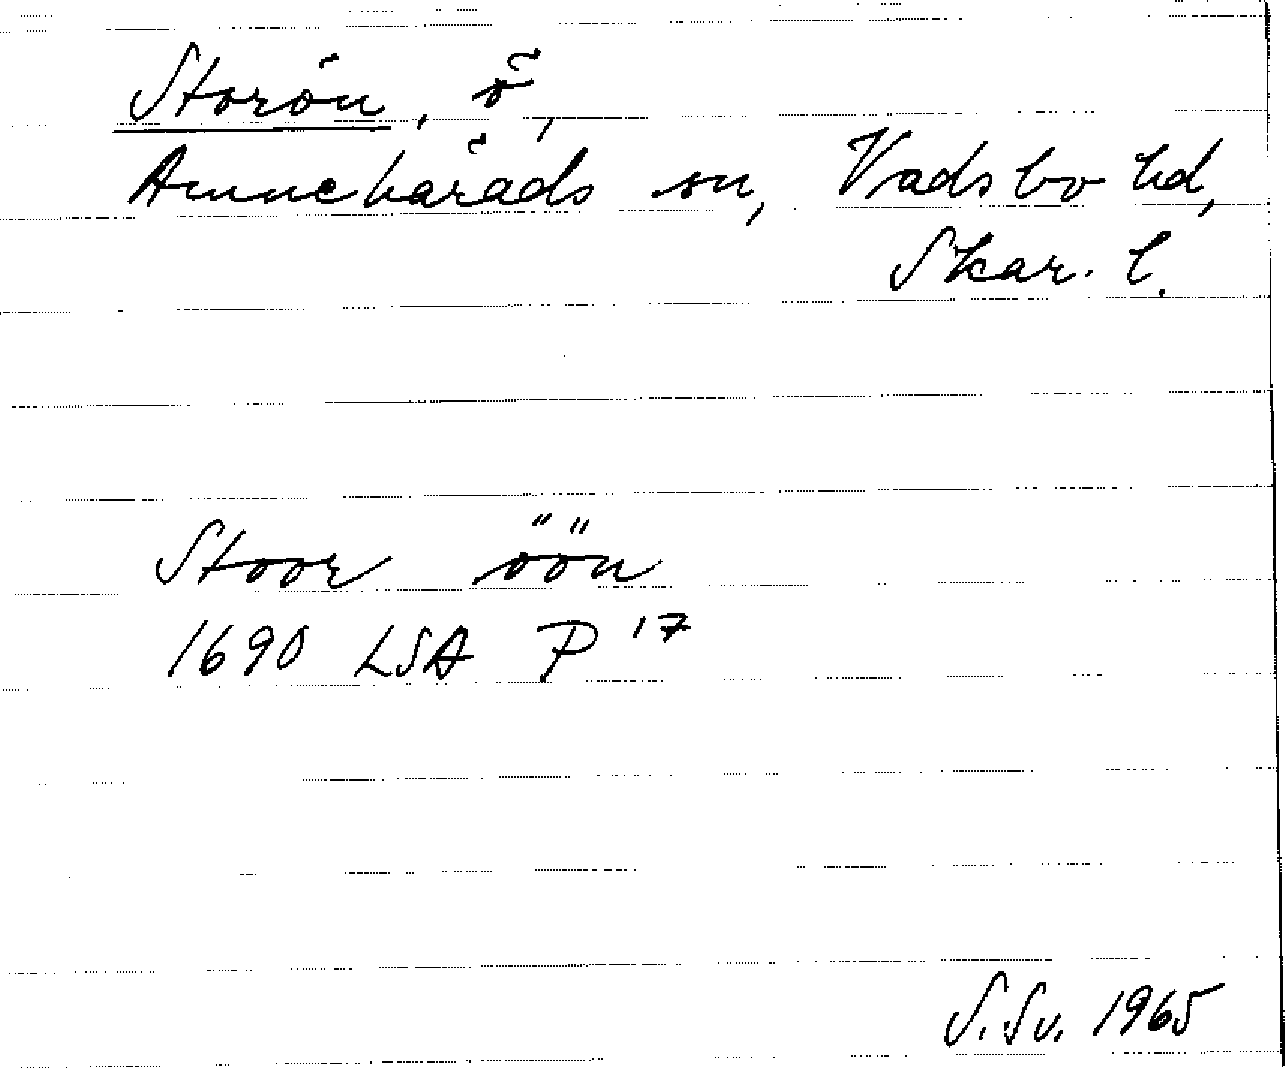 Storön, ö,
Amnehärads sn, Vadsbo hd,
Skar. l.
Stoor öön
1690 LSA P 17
S. Sv. 1965